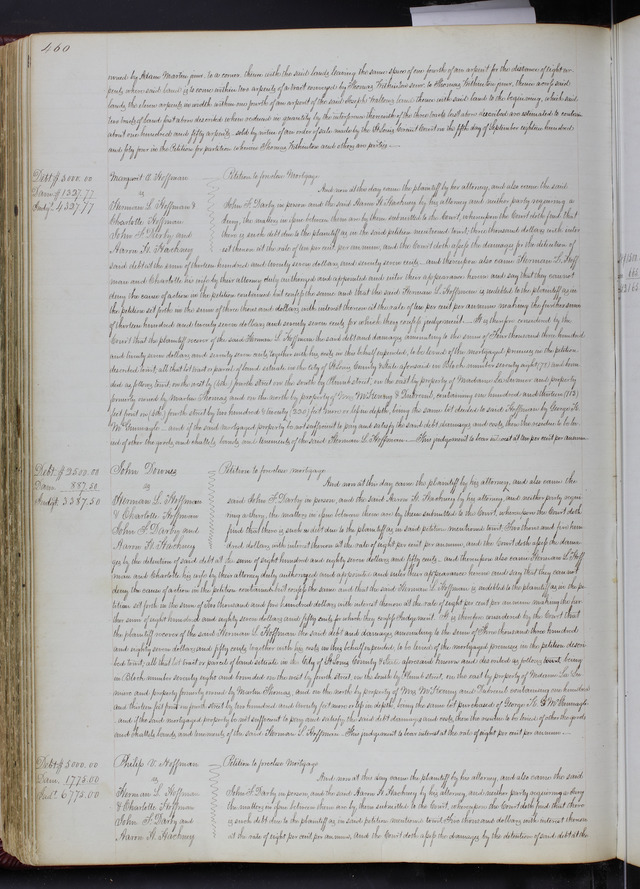 460
owned by Adam Martin junr. to a corner, thence with the said lands leaving the same space of one fourth of an arpent for the distance of eight ar-
pents where said land is to come within two arpents of a tract conveyed by Thomas senr. to Thomas junr., thence along said
lands, the eleven arpents in width and one fourth of an arpent of the said Joseph land, thence with said land to the beginning, which said
two tracts of land last above described when reduced in quantity by the interference therewith of the three tracts last above described are estimated to contain
about one hundred and fifty arpents, sold by virtue of an order of sale made by the St. Louis Court on the fifth day of September eighteen hundred
and fifty four in the Petition for partition wherein Thomas and others are parties.
Debt $3000.00
Dam 1327.77
Judgt. 4327.77
Margaret A. Hoffman
vs
Herman L. Hoffman &
Charlotte Hoffman
John F. Darby and
Aaron H. Hackney
Petition to foreclose Mortgage
And now at this day came the plaintiff by his attorney, and also came the said
John F. Darby in person and the said Aaron H. Hackney by his attorney and neither party requiring a
jury, the matters in issue between them are by them submitted to the Court, whereupon the Court doth find that
there is such debt due to the plaintiff as in the said petition mentioned to wit, three thousand dollars with inter-
est thereon at the rate of ten per cent per annum, and the Court doth assess the damages for the detention of
said debt at the sum of thirteen hundred and twenty seven dollars and seventy seven cents, and thereupon also came Herman L. Hoff-
man and Charlotte his wife by their attorney duly authorized and appointed and enter their appearance herein and say that they cannot
deny the cause of action in the petition contained but confess the same and that the said Herman L. Hoffman is indebted to the plaintiff as in
the petition set forth in the sum of three thousand dollars, with interest thereon at the rate of ten per cent per annum making the further sum
of thirteen hundred and twenty seven dollars and seventy seven cents for which they confess judgment. It is therefore considered by the
Court that the plaintiff recover of the said Herman L. Hoffman the said debt and damages amounting to the sum of Four thousand three hundred
and twenty seven dollars and seventy seven cents, together with his costs in this behalf expended, to be levied of the mortgaged premises in the petition
described to wit, all that lot tract or parcel of land situate in the city of St. Louis County & State aforesaid in Block number seventy eight (78) and bound-
ed as follows, to wit, on the east by (4th) fourth street on the south by street, on the west by property of Madame and property
formerly owned by Martin Thomas, and on the north by property of Mrs. McKenney & containing one hundred and thirteen (113)
feet front on (4th) fourth street by two hundred & twenty (220) feet more or less in depth, being the same lot deeded to said Hoffman by George K.
McGunnegle, and if the said mortgaged property be not sufficient to pay and satisfy the said debt damages and costs, then the residue to be lev-
ied of other the goods and chattels, lands and tenements of the said Herman L. Hoffman. This judgment to bear interest at ten per cent per annum
Debt $2500.00
Dam 887.50
Judgt. 3387.50
John Downes
vs
Herman L. Hoffman
& Charlotte Hoffman
John F. Darby and
Aaron H. Hackney
Petition to foreclose mortgage
And now at this day came the plaintiff by his attorney, and also came the
said John F. Darby in person, and the said Aaron H. Hackney by his attorney, and neither party requi-
ring a jury, the matters in issue between them are by them submitted to the Court, whereupon the Court doth
find that there is such a debt due to the plaintiff as in said petition mentioned to wit, Two thousand five hun-
dred dollars, with interest thereon at the rate of eight per cent per annum, and the Court doth assess the dama-
ges by the detention of said debt at the sum of eight hundred and eighty seven dollars and fifty cents, and thereupon also came Herman L. Hoff-
man and Charlotte his wife by their attorney duly authorized and appointed and enter their appearance herein and say that they can not
deny the cause of action in the petition contained but confess the same and that the said Herman L. Hoffman is indebted to the plaintiff as in the pe-
tition set forth in the sum of Two thousand and five hundred dollars with interest thereon at the rate of eight per cent per annum making the fur-
ther sum of eight hundred and eighty seven dollars and fifty cents for which they confess judgment. It is therefore considered by the Court that
the plaintiff recover of the said Herman L. Hoffman the said debt and damages amounting to the sum of Three thousand three hundred
and eighty seven dollars and fifty cents, together with his costs in this behalf expended, to be levied of the mortgaged premises in the petition descri-
bed to wit, all that lot tract or parcel of land situate in the City of St. Louis County & State aforesaid and described as follows, to wit: being
in Block number seventy eight and bounded on the east by fourth street, on the south by street, on the west by property of Madame
and property formerly owned by Martin Thomas, and on the north by property of Mrs. McKenney and containing one hundred
and thirteen feet front on fourth street by two hundred and twenty feet more or less in depth, being the same lot purchased of George K. McGunnegle,
and if the said mortgaged property be not sufficient to pay and satisfy the said debt damages and costs, then the residue to be levied of other the goods
and chattels, lands and tenements of the said Herman L. Hoffman. This judgment to bear interest at the rate of eight per cent per annum
Debt $5000.00
Dam 1775.00
Judt. 6775.00
Philip V. Hoffman
vs
Herman L. Hoffman
& Charlotte Hoffman
John F. Darby and
Aaron H. Hackney
Petition to foreclose Mortgage
And now at this day came the plaintiff by his attorney, and also came the said
John F. Darby in person, and the said Aaron H. Hackney by his attorney, and neither party requiring a jury
the matters in issue between them are by them submitted to the Court, whereupon the Court doth find that there
is such debt due to the plaintiff as in said petition mentioned to wit Five thousand dollars, with interest thereon
at the rate of eight per cent per annum, and the Court doth assess the damages by the detention of said debt at the